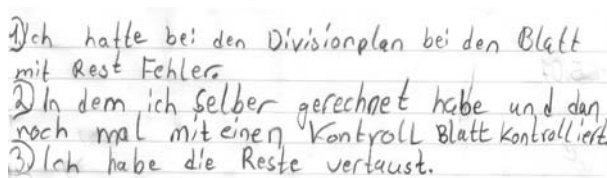 1) Ich hatte bei den Divisionplan bei den Blatt
mit Rest Fehler.
2) In dem ich selber gerechnet habe und dan
noch mal mit einen Kontroll Blatt kontrolliert
3) Ich habe die Reste vertaust.